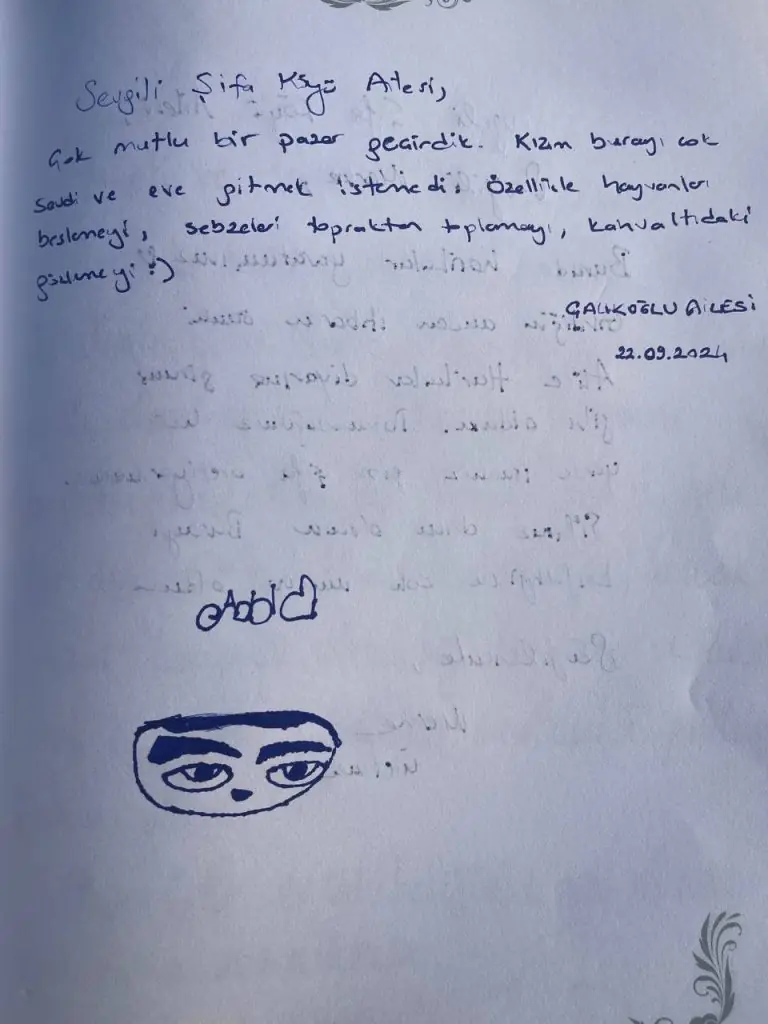 Sevgili Şifa Köyü Ailesi,
Çok mutlu bir pazar geçirdik. Kızım burayı çok
sevdi ve eve gitmek istemedi. Özellikle hayvanları
beslemeyi, sebzeleri topraktan toplamayı, kahvaltıdaki
gözlemeyi :)
ÇALIKOĞLU AİLESİ
22.09.2024